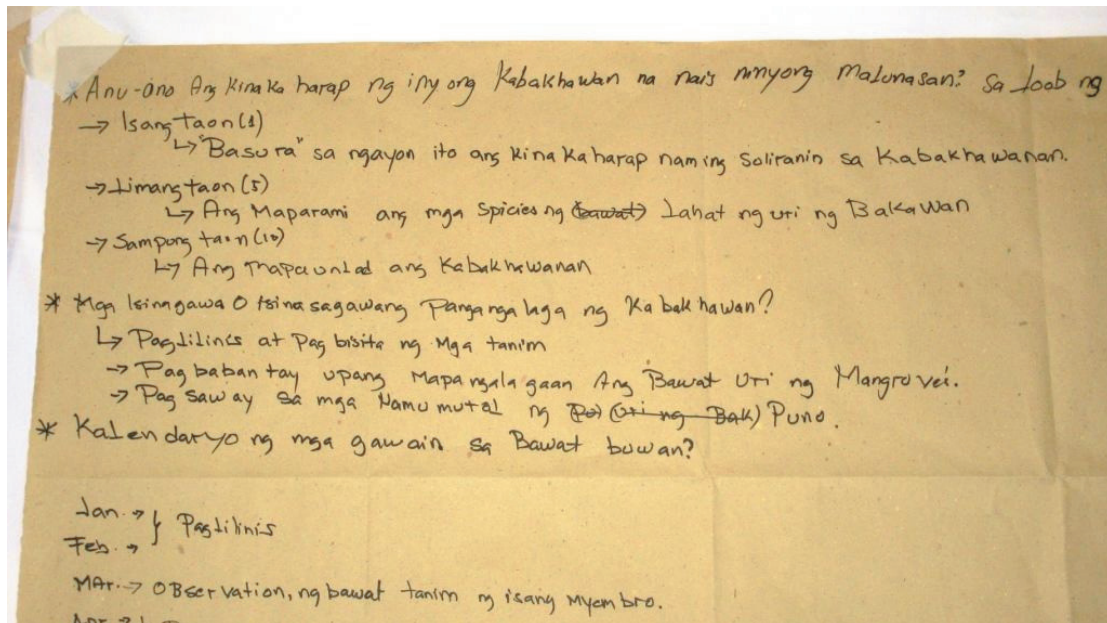 * Anu-ano Ang Kinaka harap ng inyong Kabakhawan na nais ninyong malunasan? sa loob ng
→ Isang taon (1)
↳ "Basura" sa ngayon ito ang kina kaharap naming soliranin sa Kabakhawanan.
→ Limang taon (5)
↳ Ang Maparami ang mga Spicies ng (bawat) Lahat ng uri ng Bakawan
→ Sampong taon (10)
↳ Ang mapaunlad ang Kabakhawanan
* Mga Isinagawa O Isina sagawang Panganga laga ng Ka bak hawan?
↳ Paglilinis at Pag bisita ng Mga tanim
→ Pag baban tay upang mapa ngala gaan Ang Bawat Uri ng Mangrovei.
→ Pag saway sa mga Namu mutol ng (Pu) (Uri ng Bak) Puno.
* Kalendaryo ng mga gawain sa Bawat buwan?
Jan. → } Paglilinis
Feb. →
MAr. → OBservation, ng bawat tanim ng isang myembro.